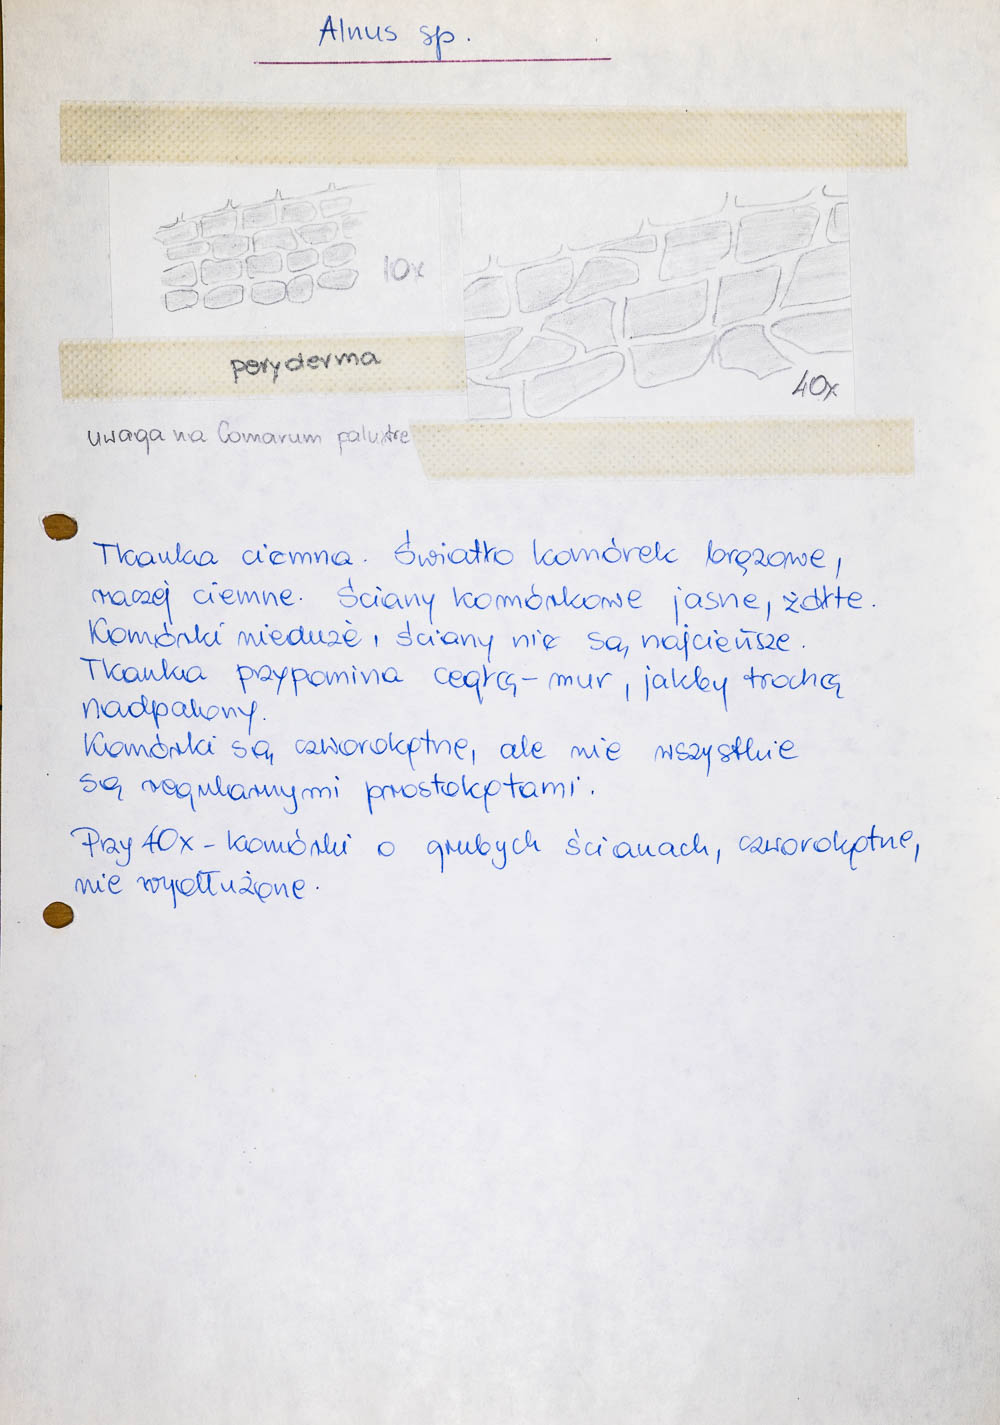 Alnus sp.
10x
40x
peryderma
uwaga na Comarum palustre
Tkanka ciemna. Światło komórek brązowe,
raczej ciemne. Ściany komórkowe jasne, żółte.
Komórki nieduże, ściany nie są najcieńsze.
Tkanka przypomina cegłę-mur, jakby trochę
nadpalony.
Komórki są czworokątne, ale nie wszystkie
są regularnymi prostokątami.
Przy 40x - komórki o grubych ścianach, czworokątne,
nie wydłużone.